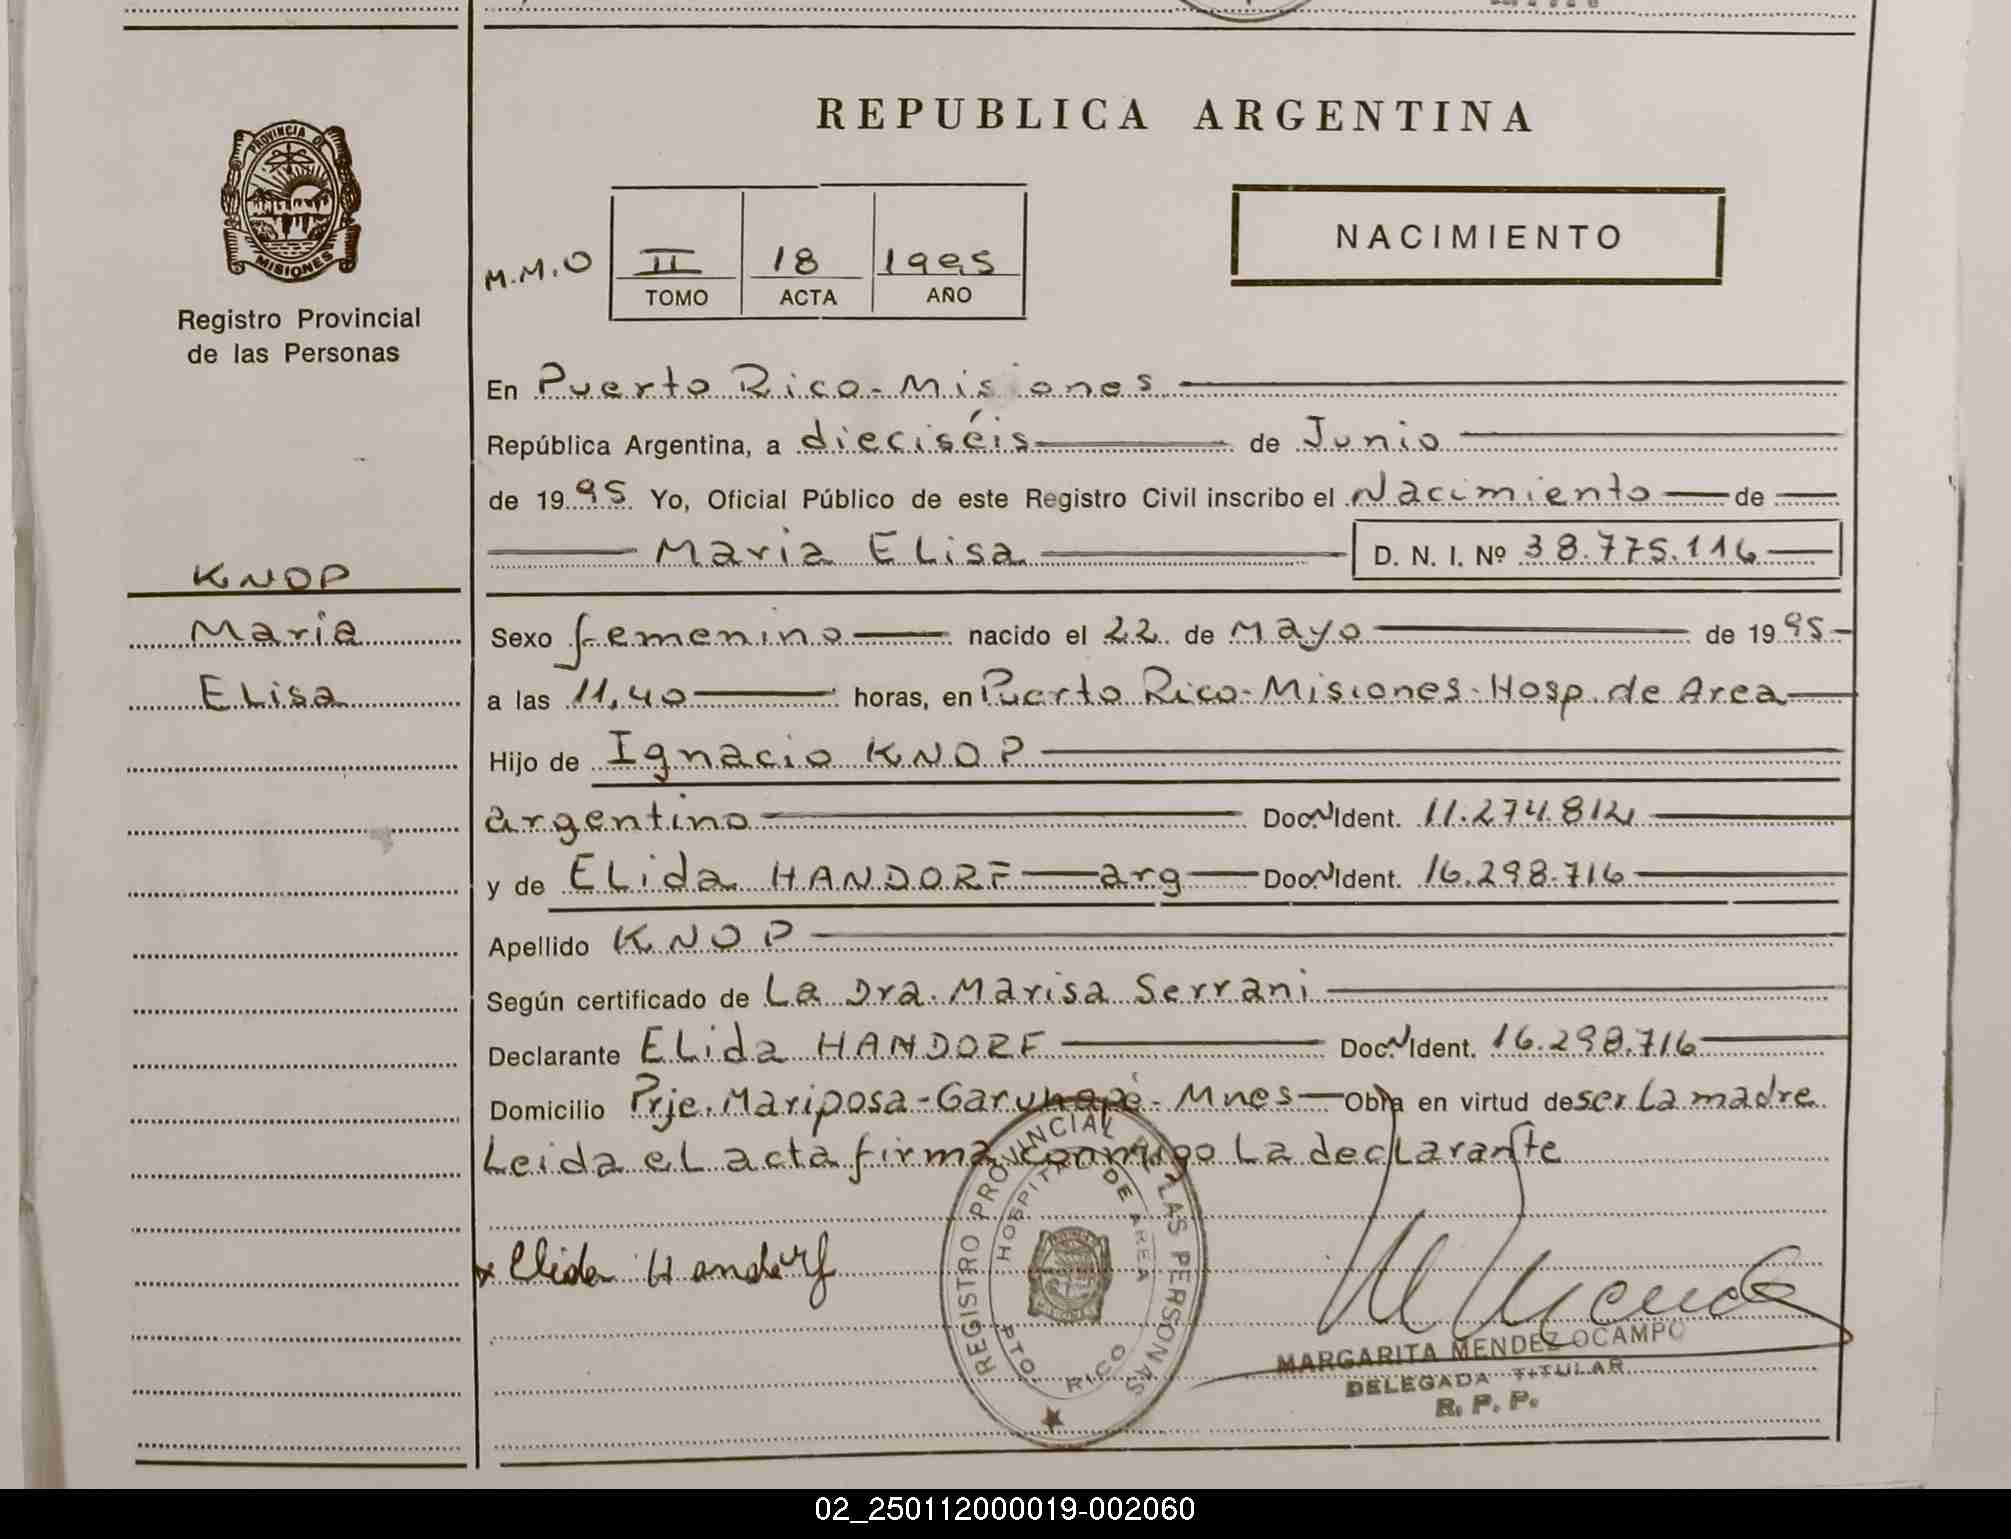 REPUBLICA ARGENTINA
PROVINCIA DE
MISIONES
Registro Provincial
de las Personas
NACIMIENTO
M.M.O II 18 1995
TOMO ACTA AÑO
En Puerto Rico - Misiones
República Argentina, a dieciséis de Junio
de 1995 Yo, Oficial Público de este Registro Civil inscribo el Nacimiento de
Maria Elisa D. N. I. Nº 38.775.116
KNOP
Maria
Elisa
Sexo femenino nacido el 22 de Mayo de 1995
a las 11,40 horas, en Puerto Rico - Misiones - Hosp. de Area
Hijo de Ignacio KNOP
argentino Doc. N Ident. 11.274.812
y de Elida HANDORF arg Doc. N Ident. 16.298.716
Apellido KNOP
Según certificado de La Dra. Marisa Serrani
Declarante Elida HANDORF Doc. N Ident. 16.298.716
Domicilio Prje. Mariposa - Garuhapé - Mnes Obra en virtud de ser la madre
Leida el acta firma conmigo la declarante
x Elida Handorf
REGISTRO PROVINCIAL DE LAS PERSONAS
HOSPITAL DE AREA
PTO. RICO
MARGARITA MENDEZ OCAMPO
DELEGADA TITULAR
R. P. P.
02_250112000019-002060